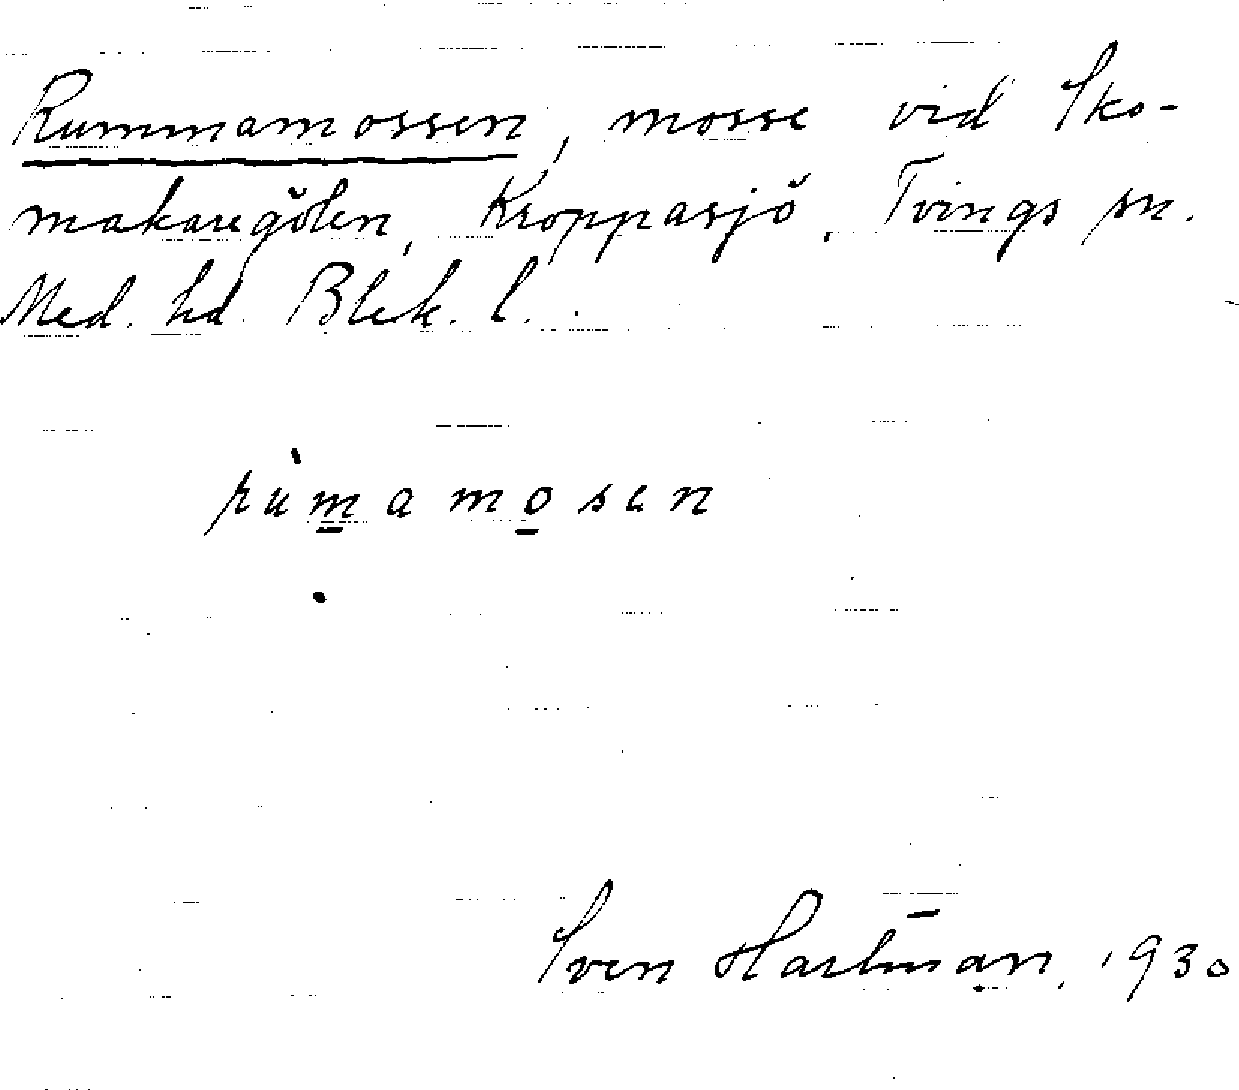 Rummamossen, mosse vid Sko-
makaregölen, Kroppasjö, Tvings sn.
Med. hd. Blek. l.
rùmamosen
Sven Hartman, 1930